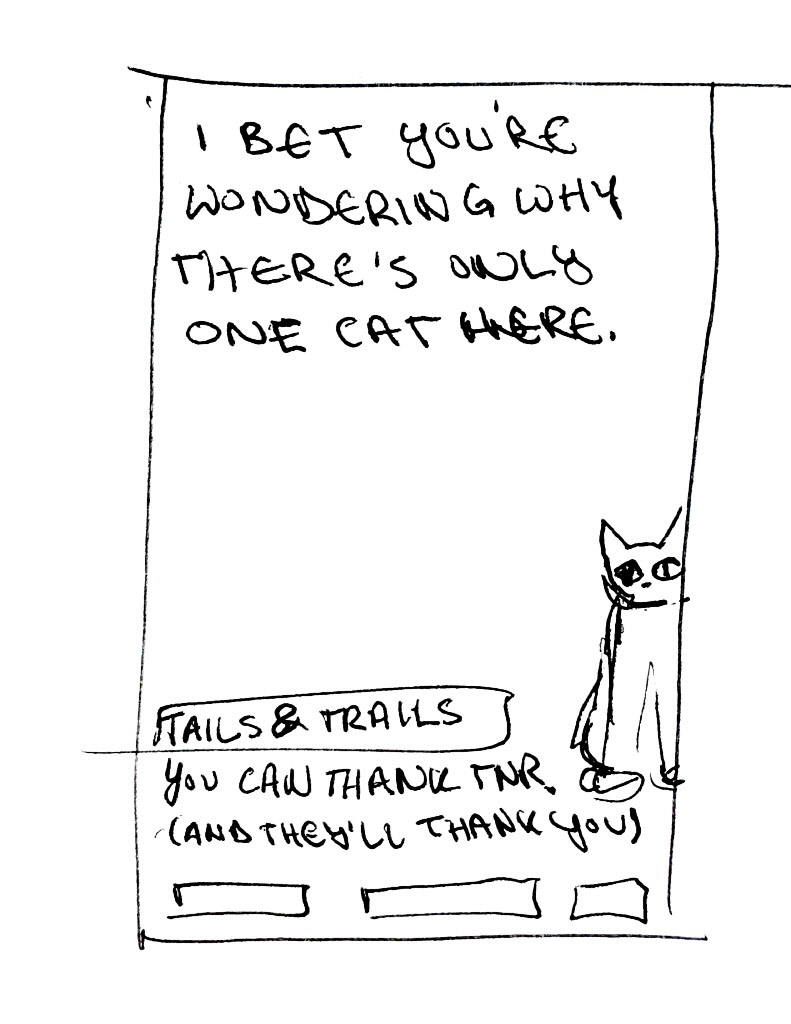 I BET YOU'RE
WONDERING WHY
THERE'S ONLY
ONE CAT HERE.
TAILS & TRAILS
YOU CAN THANK TNR.
(AND THEY'LL THANK YOU)